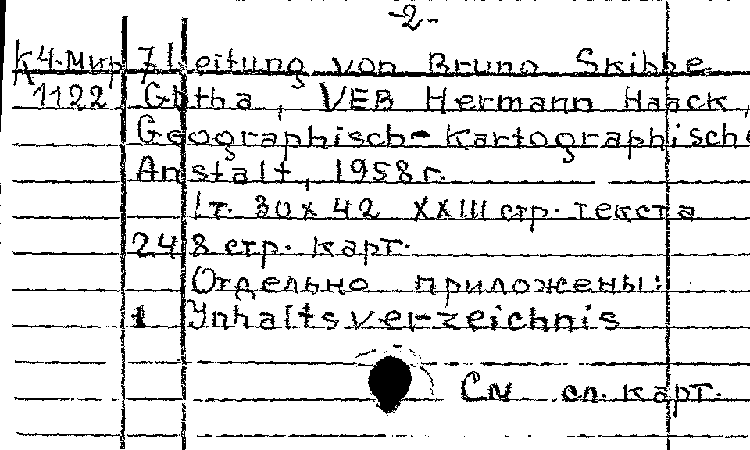 -2-
К4-Мир 7 Leitung von Bruno Skibbe
1122 Gotha, VEB Hermann Haack,
Geographisch-Kartographische
Anstalt, 1958г.
1т. 30х42 XXIII стр. текста
248 стр. карт.
Отдельно приложены:
1 Inhaltsverzeichnis
См сл. карт.